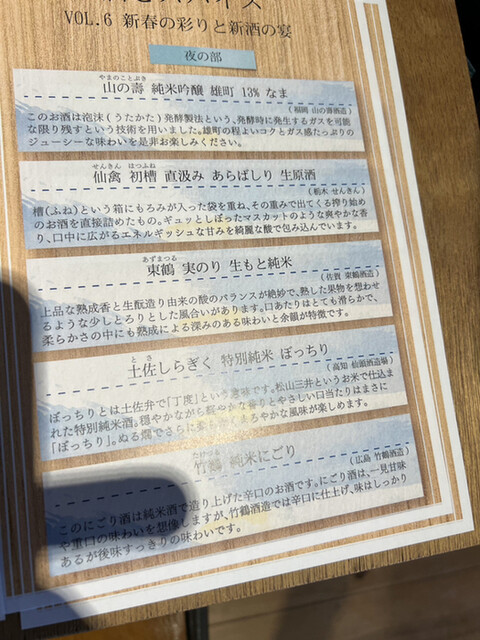 VOL.6 新春の彩りと新酒の宴
夜の部
やまのことぶき
山の壽 純米吟醸 雄町 13% なま
(福岡 山の壽酒造)
このお酒は泡沫(うたかた)発酵製法という、発酵時に発生するガスを可能
な限り残すという技術を用いました。雄町の程よいコクとガス感たっぷりの
ジューシーな味わいを是非お楽しみください。
せんきん はつふね
仙禽 初槽 直汲み あらばしり 生原酒
(栃木 せんきん)
槽(ふね)という箱にもろみが入った袋を重ね、その重みで出てくる搾り始め
のお酒を直接詰めたもの。ギュッとしぼったマスカットのような爽やかな香
り、口中に広がるエネルギッシュな甘みを綺麗な酸で包み込んでいます。
あずまつる
東鶴 実のり 生もと純米
(佐賀 東鶴酒造)
上品な熟成香と生酛造り由来の酸のバランスが絶妙で、熟した果物を想わせ
るような少しとろりとした風合いがあります。口あたりはとても滑らかで、
柔らかさの中にも熟成による深みのある味わいと余韻が特徴です。
とさ
土佐しらぎく 特別純米 ぼっちり
(高知 仙頭酒造場)
ぼっちりとは土佐弁で「丁度」という意味です。松山三井というお米で仕込ま
れた特別純米酒。穏やかながら爽やかな香りとやさしい口当たりはまさに
「ぼっちり」。ぬる燗でさらに柔らかくまろやかな風味が楽しめます。
たけつる
竹鶴 純米にごり
(広島 竹鶴酒造)
このにごり酒は純米酒で造り上げた辛口のお酒です。にごり酒は、一見甘味
や重口の味わいを想像しますが、竹鶴酒造では辛口に仕上げ、味はしっかり
あるが後味すっきりの味わいです。